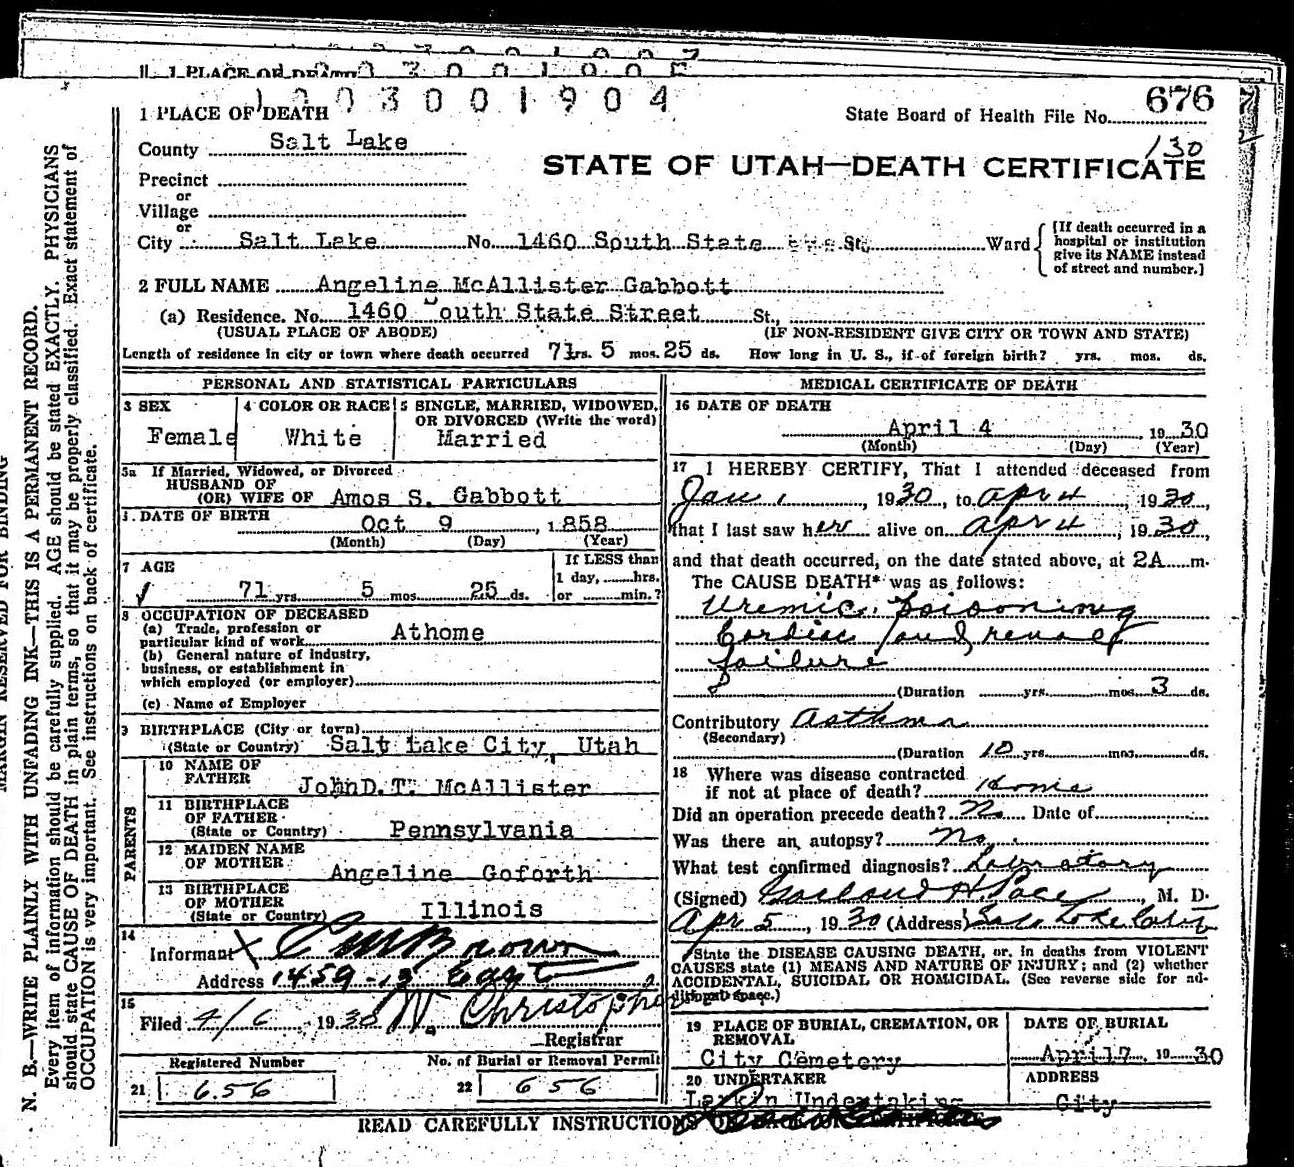 1 PLACE OF DEATH
1003001904
State Board of Health File No. 676
130
County Salt Lake
STATE OF UTAH—DEATH CERTIFICATE
Precinct
or
Village
or
City Salt Lake No. 1460 South State St. Ward
[If death occurred in a hospital or institution give its NAME instead of street and number.]
2 FULL NAME Angeline McAllister Gabbott
(a) Residence. No. 1460 South State Street St.,
(USUAL PLACE OF ABODE) (IF NON-RESIDENT GIVE CITY OR TOWN AND STATE)
Length of residence in city or town where death occurred 71 yrs. 5 mos. 25 ds. How long in U. S., if of foreign birth? yrs. mos. ds.
PERSONAL AND STATISTICAL PARTICULARS
3 SEX
Female
4 COLOR OR RACE
White
5 SINGLE, MARRIED, WIDOWED, OR DIVORCED (Write the word)
Married
5a If Married, Widowed, or Divorced
HUSBAND OF
(OR) WIFE OF Amos S. Gabbott
DATE OF BIRTH
Oct 9, 1858
(Month) (Day) (Year)
7 AGE
71 yrs. 5 mos. 25 ds.
If LESS than
1 day, hrs.
or min.?
8 OCCUPATION OF DECEASED
(a) Trade, profession or
particular kind of work Athome
(b) General nature of industry,
business, or establishment in
which employed (or employer)
(c) Name of Employer
9 BIRTHPLACE (City or town)
(State or Country) Salt Lake City, Utah
PARENTS
10 NAME OF
FATHER
John D. T. McAllister
11 BIRTHPLACE
OF FATHER
(State or Country) Pennsylvania
12 MAIDEN NAME
OF MOTHER
Angeline Goforth
13 BIRTHPLACE
OF MOTHER
(State or Country) Illinois
14
Informant X C M Brown
Address 1459-13 East
15
Filed 4/6, 1930 Christopher
Registrar
Registered Number
21 656
No. of Burial or Removal Permit
22 656
MEDICAL CERTIFICATE OF DEATH
16 DATE OF DEATH
April 4, 1930
(Month) (Day) (Year)
17 I HEREBY CERTIFY, That I attended deceased from
Jan 1, 1930, to Apr 4, 1930,
that I last saw her alive on Apr 4, 1930,
and that death occurred, on the date stated above, at 2A m.
The CAUSE DEATH* was as follows:
Uremic Poisoning
Cardiac and renal
failure
(Duration yrs. mos. 3 ds.
Contributory Asthma
(Secondary)
(Duration 10 yrs. mos. ds.
18 Where was disease contracted
if not at place of death? Home
Did an operation precede death? No Date of
Was there an autopsy? No.
What test confirmed diagnosis? Laboratory
(Signed) Garland H. Pace, M. D.
Apr 5, 1930 (Address) Salt Lake City
*State the DISEASE CAUSING DEATH, or, in deaths from VIOLENT
CAUSES state (1) MEANS AND NATURE OF INJURY; and (2) whether
ACCIDENTAL, SUICIDAL OR HOMICIDAL. (See reverse side for ad-
ditional space.)
19 PLACE OF BURIAL, CREMATION, OR
REMOVAL
City Cemetery
DATE OF BURIAL
April 7, 1930
20 UNDERTAKER
Larkin Undertaking
ADDRESS
City
READ CAREFULLY INSTRUCTIONS
N. B.—WRITE PLAINLY WITH UNFADING INK—THIS IS A PERMANENT RECORD.
Every item of information should be carefully supplied. AGE should be stated EXACTLY. PHYSICIANS
should state CAUSE OF DEATH in plain terms, so that it may be properly classified. Exact statement of
OCCUPATION is very important. See instructions on back of certificate.
MARGIN RESERVED FOR BINDING